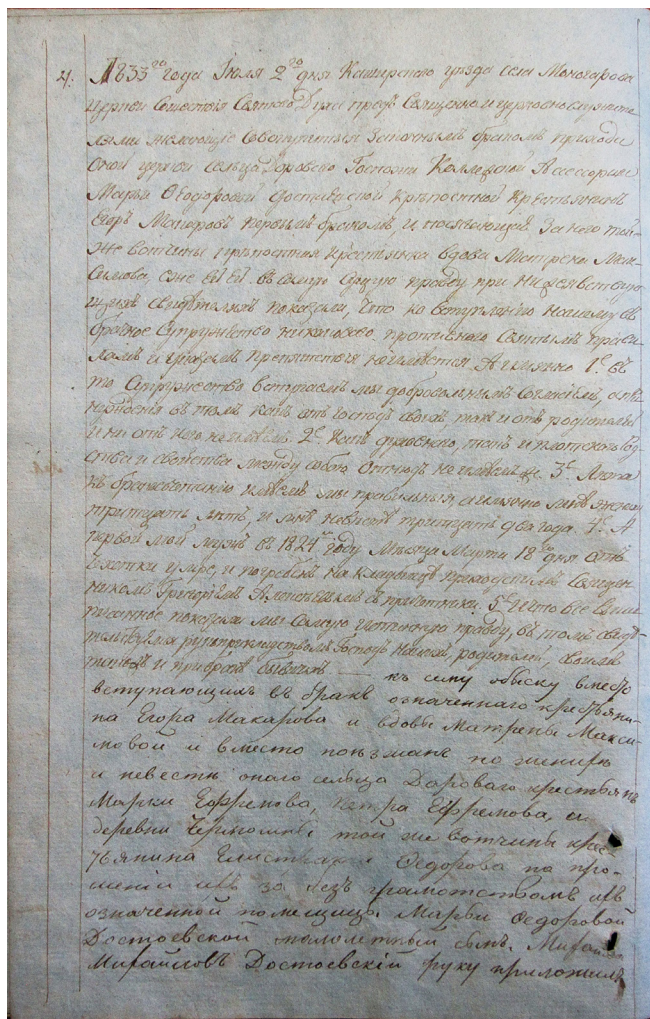 4. 1833го года Июля 2го дня Каширского уезда села Моногарова
церкви Сошествия Святого Духа пред Священно и церковнослужите
лями желающие совокупиться законным браком приходы
Оной церкви сельца Дорового Госпожи Коллежской Ассессорши
Марьи Феодоровой Достоевской крепостной Крестьянинъ
Егоръ Макаровъ первымъ бракомъ и посягающая за него той
же вотчины крепостная крестьянка вдова Матрена Мак-
симова, въ самую сущую правду при нижеявствую
щихъ свидетеляхъ показали, что ко вступлению нашему въ
брачное супружество никакового противного Святымъ прави
ламъ и указамъ препятствия неимеется. А именно 1е въ
то Супружество вступаемъ мы добровольнымъ согласиемъ,
въ томъ какъ отъ Господъ своихъ такъ и отъ родителей
и ни отъ кого неимеемъ. 2е Какъ духовного, такъ и плотского род-
ства и свойства между собою отнюдь неимеемъ. 3е Лета
къ бракосочетанию имеемъ мы правильныя, а именно мне жениху
тритцать летъ, и мне невесте тритцать два года. 4е А
первой мой мужъ въ 1824мъ году Месяца Марта 18го дня отъ
чахотки умре, и погребенъ на кладбище приходскимъ Священ
никомъ Григориемъ съ причетники. 5е И что все выше
писанное показали мы самую истинную правду, въ томъ свиде
тельствуемъ рукоприкладствомъ Господъ нашихъ, родителей, своимъ
и при браке бывшихъ — къ сему обыску вместо
вступающихъ въ бракъ означеннаго крестьяни-
на Егора Макарова и вдовы Матрены Макси-
мовой и вместо поезжанъ по жениху
и невесте онаго сельца Дароваго крестьянъ
Марки Ефремова, Петра Ефремова, и
деревни Чермошни той же вотчины крес-
тьянина Федорова по про-
шению ихъ за безъ грамотствомъ ихъ
означенной помещицы Марьи Федоровой
Достоевской малолетный сынъ Михайла
Михайловъ Достоевский руку приложилъ